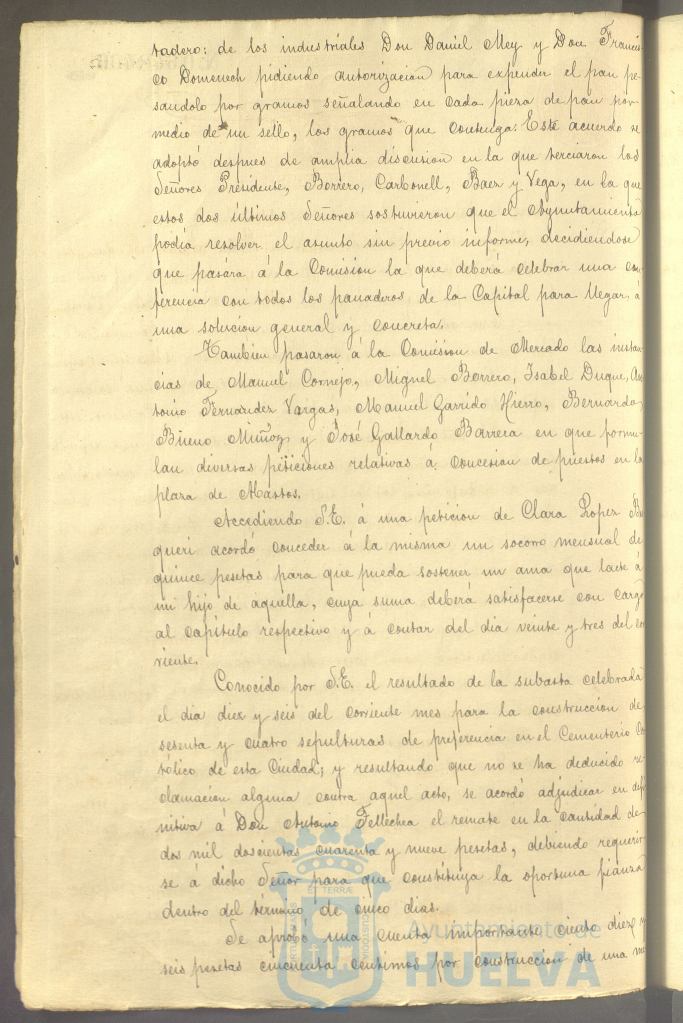 tadero: de los industriales Don Daniel Mey y Don Francis
co Domenech pidiendo autorizacion para expender el pan pe
sandolo por gramos señalando en cada pieza de pan por
medio de un sello, los gramos que contenga. Este acuerdo se
adoptó despues de amplia discusion en la que terciaron los
Señores Presidente, Borrero, Carbonell, Baez y Vega, en la que
estos dos últimos Señores sostuvieron que el Ayuntamiento
podía resolver el asunto sin previo informe, decidiendose
que pasára á la Comision la que deberá celebrar una con
ferencia con todos los panaderos de la Capital para llegar á
una solucion general y concreta.
Tambien pasaron á la Comision de Mercado las instan
cias de Manuel Cornejo, Miguel Borrero, Isabel Duque, An
tonio Fernandez Vargas, Manuel Garrido Hierro, Bernardo
Bueno Muñoz y José Gallardo Barrera en que formu
lan diversas peticiones relativas á concesion de puestos en la
plaza de Abastos.
Accediendo S.E. á una peticion de Clara Lopez
queri acordó conceder á la misma un socorro mensual de
quince pesetas para que pueda sostener un ama que lacte á
un hijo de aquella, cuya suma deberá satisfacerse con cargo
al capítulo respectivo y á contar del dia veinte y tres del co
rriente.
Conocido por S.E. el resultado de la subasta celebrada
el dia diez y seis del corriente mes para la construccion de
sesenta y cuatro sepulturas de preferencia en el Cementerio Ca
tólico de esta Ciudad; y resultando que no se ha deducido re
clamacion alguna contra aquel acto, se acordó adjudicar en defi
nitiva á Don Antonio Tellechea el remate en la cantidad de
dos mil doscientas cuarenta y nueve pesetas, debiendo requerir
se á dicho Señor para que constituya la oportuna fianza
dentro del termino de cinco dias.
Se aprobó una cuenta importante ciento diez y
seis pesetas cincuenta centimos por construccion de una me
Ayuntamiento de
HUELVA